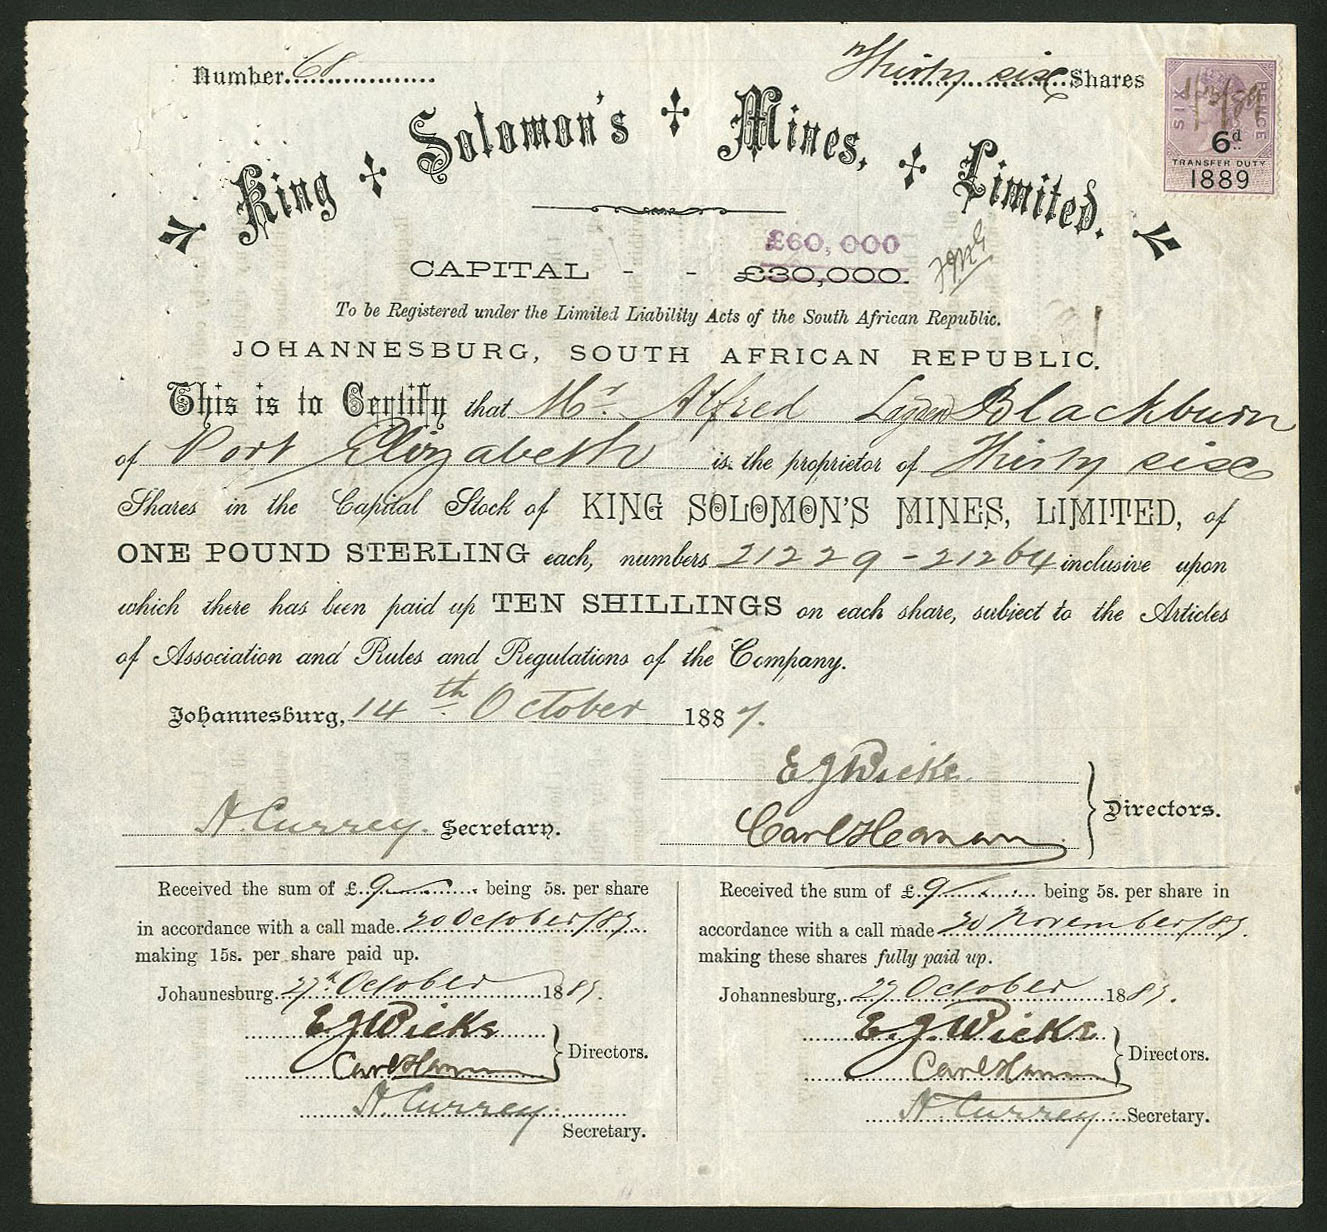 Number 68
Thirty six Shares
SIX PENCE
6d
TRANSFER DUTY
1889
King Solomon's Mines, Limited.
£60,000
CAPITAL - - £30,000.
To be Registered under the Limited Liability Acts of the South African Republic.
JOHANNESBURG, SOUTH AFRICAN REPUBLIC.
This is to Certify that Mr. Alfred Blackburn
of Port Elizabeth is the proprietor of Thirty six
Shares in the Capital Stock of KING SOLOMON'S MINES, LIMITED, of
ONE POUND STERLING each, numbers 21229 - 21264 inclusive upon
which there has been paid up TEN SHILLINGS on each share, subject to the Articles
of Association and Rules and Regulations of the Company.
Johannesburg, 14th October 1887.
E J Wicks
H. Currey. Secretary.
Carl Hanau
Directors.
Received the sum of £ 9 being 5s. per share
in accordance with a call made 20 October/87.
making 15s. per share paid up.
Johannesburg. 27th October 1887.
E J Wicks
Carl Hanau
Directors.
H. Currey
Secretary.
Received the sum of £ 9 being 5s. per share in
accordance with a call made 20 November/87.
making these shares fully paid up.
Johannesburg, 27 October 1887.
E. J. Wicks
Carl Hanau
Directors.
H. Currey Secretary.